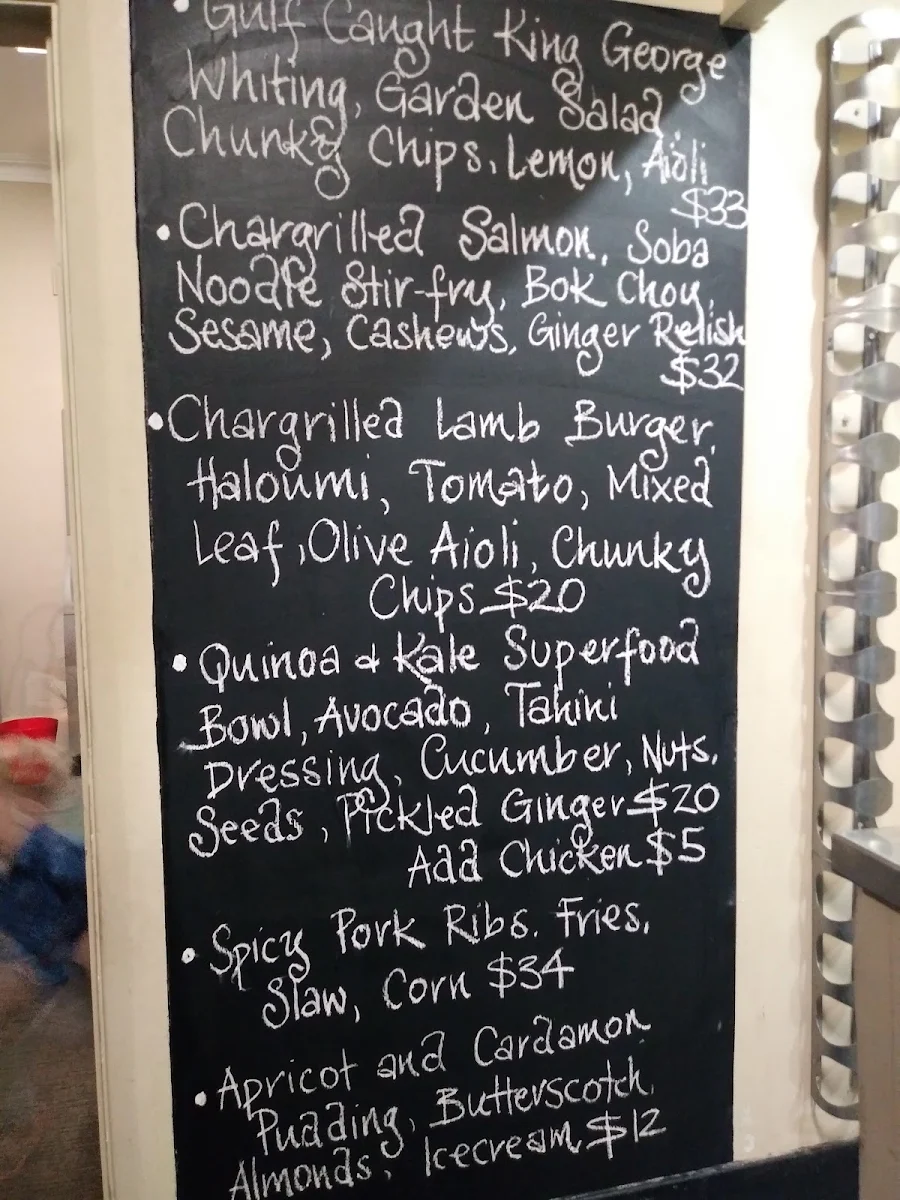 • Gulf Caught King George
Whiting, Garden Salad
Chunky Chips, Lemon, Aioli
$33
• Chargrilled Salmon, Soba
Noodle Stir-fry, Bok Choy,
Sesame, Cashews, Ginger Relish
$32
• Chargrilled Lamb Burger,
Haloumi, Tomato, Mixed
Leaf, Olive Aioli, Chunky
Chips $20
• Quinoa & Kale Superfood
Bowl, Avocado, Tahini
Dressing, Cucumber, Nuts,
Seeds, Pickled Ginger $20
Add Chicken $5
• Spicy Pork Ribs. Fries,
Slaw, Corn $34
• Apricot and Cardamon
Pudding, Butterscotch,
Almonds, Icecream $12